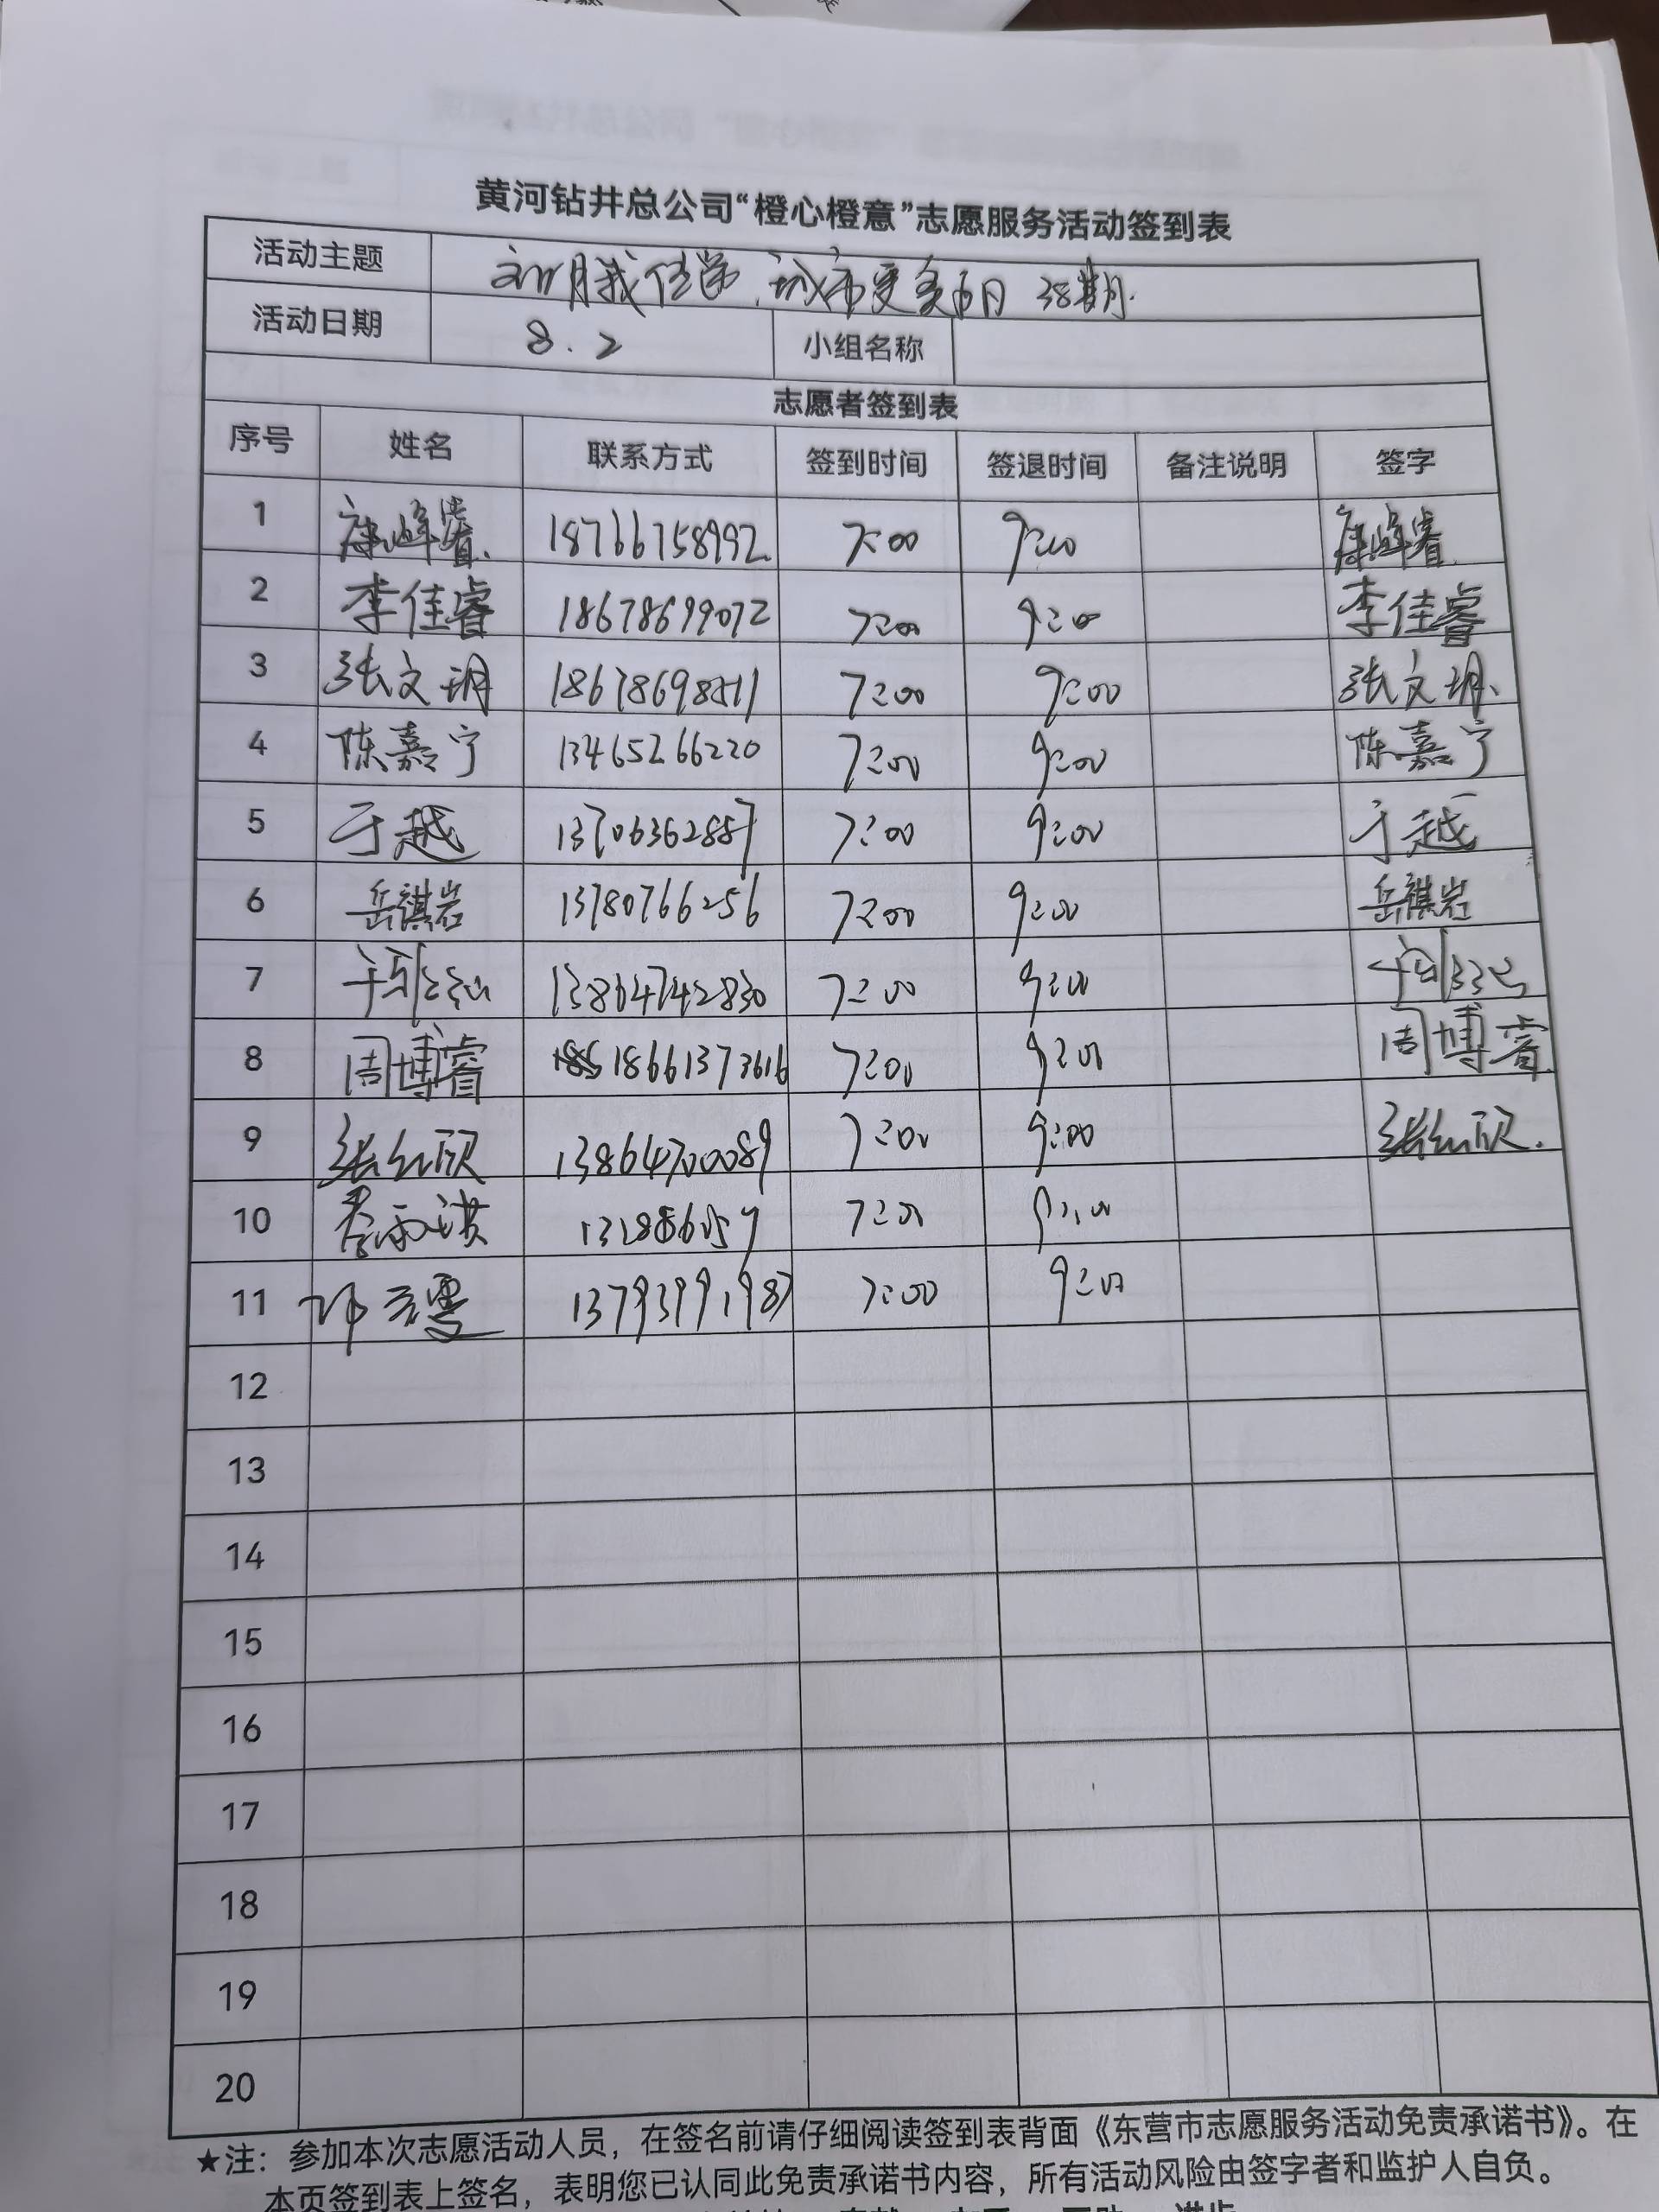 黄河钻井总公司“橙心橙意”志愿服务活动签到表
活动主题 文明我传导,城市更亮丽 38期.
活动日期 8.2 小组名称
志愿者签到表
序号 姓名 联系方式 签到时间 签退时间 备注说明 签字
1 康峰睿 18766758992 7:00 9:00 康峰睿
2 李佳睿 18678699072 7:00 9:00 李佳睿
3 张文玥 18678698511 7:00 9:00 张文玥
4 陈嘉宁 13465266220 7:00 9:00 陈嘉宁
5 于越 13706362887 7:00 9:00 于越
6 岳祺岩 13780766256 7:00 9:00 岳祺岩
7 13864742830 7:00 9:00
8 周博睿 18661373616 7:00 9:00 周博睿
9 张红欣 13864700089 7:00 9:00 张红欣.
10 7:00 9:00
11 13793991987 7:00 9:00
12
13
14
15
16
17
18
19
20
★注：参加本次志愿活动人员，在签名前请仔细阅读签到表背面《东营市志愿服务活动免责承诺书》。在
本页签到表上签名，表明您已认同此免责承诺书内容，所有活动风险由签字者和监护人自负。